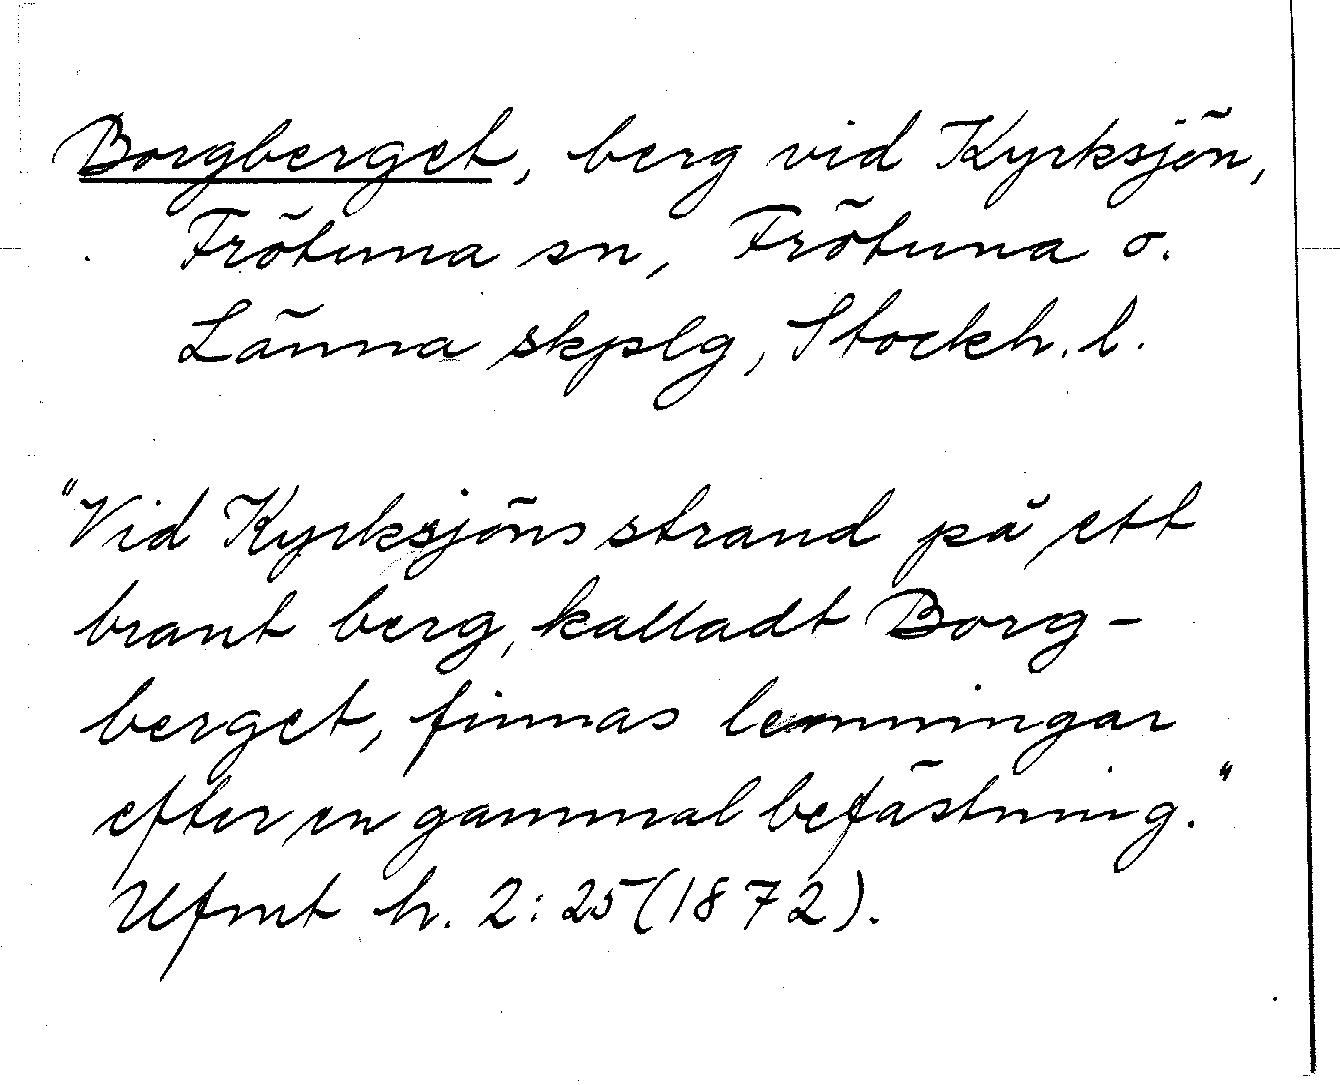 Borgberget, berg vid Kyrksjön,
Frötuna sn, Frötuna o.
Länna skplg, Stockh. l.
"Vid Kyrksjöns strand på ett
brant berg, kalladt Borg-
berget, finnas lemningar
efter en gammal befästning."
Ufmt h. 2:25 (1872).